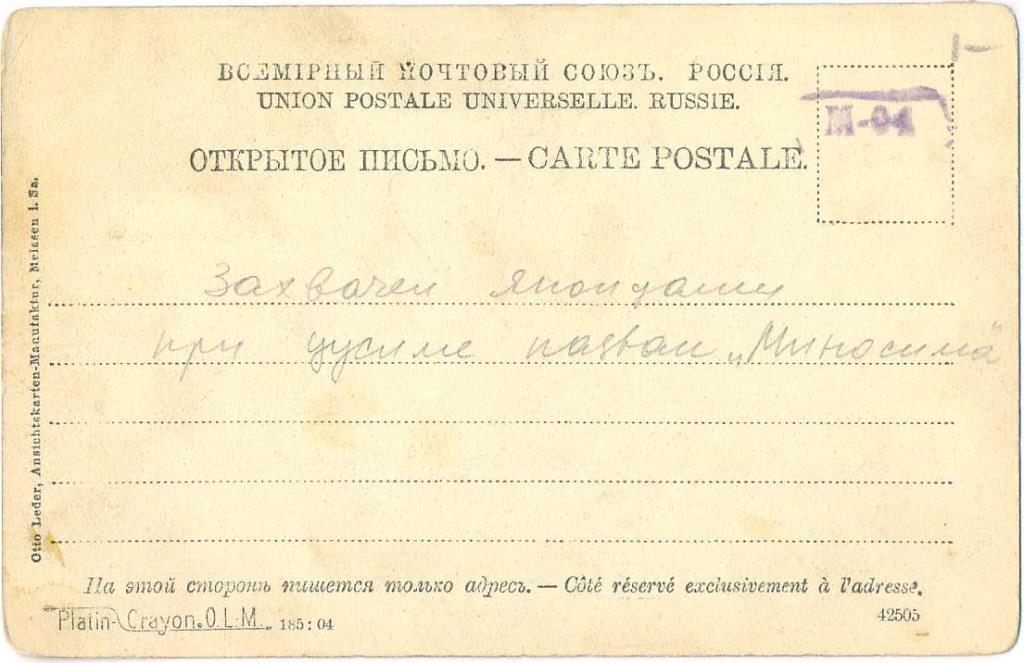 ВСЕМІРНЫЙ ПОЧТОВЫЙ СОЮЗЪ. РОССІЯ.
UNION POSTALE UNIVERSELLE. RUSSIE.
M-04
ОТКРЫТОЕ ПИСЬМО. — CARTE POSTALE.
Захвачен японцами
при цусиме назван „Миносима"
На этой сторонѣ пишется только адресъ. — Côté réservé exclusivement à l'adresse.
Platin-Crayon. O.L.M. 185:04
42505
Otto Leder, Ansichtskarten-Manufaktur, Meissen i. Sa.